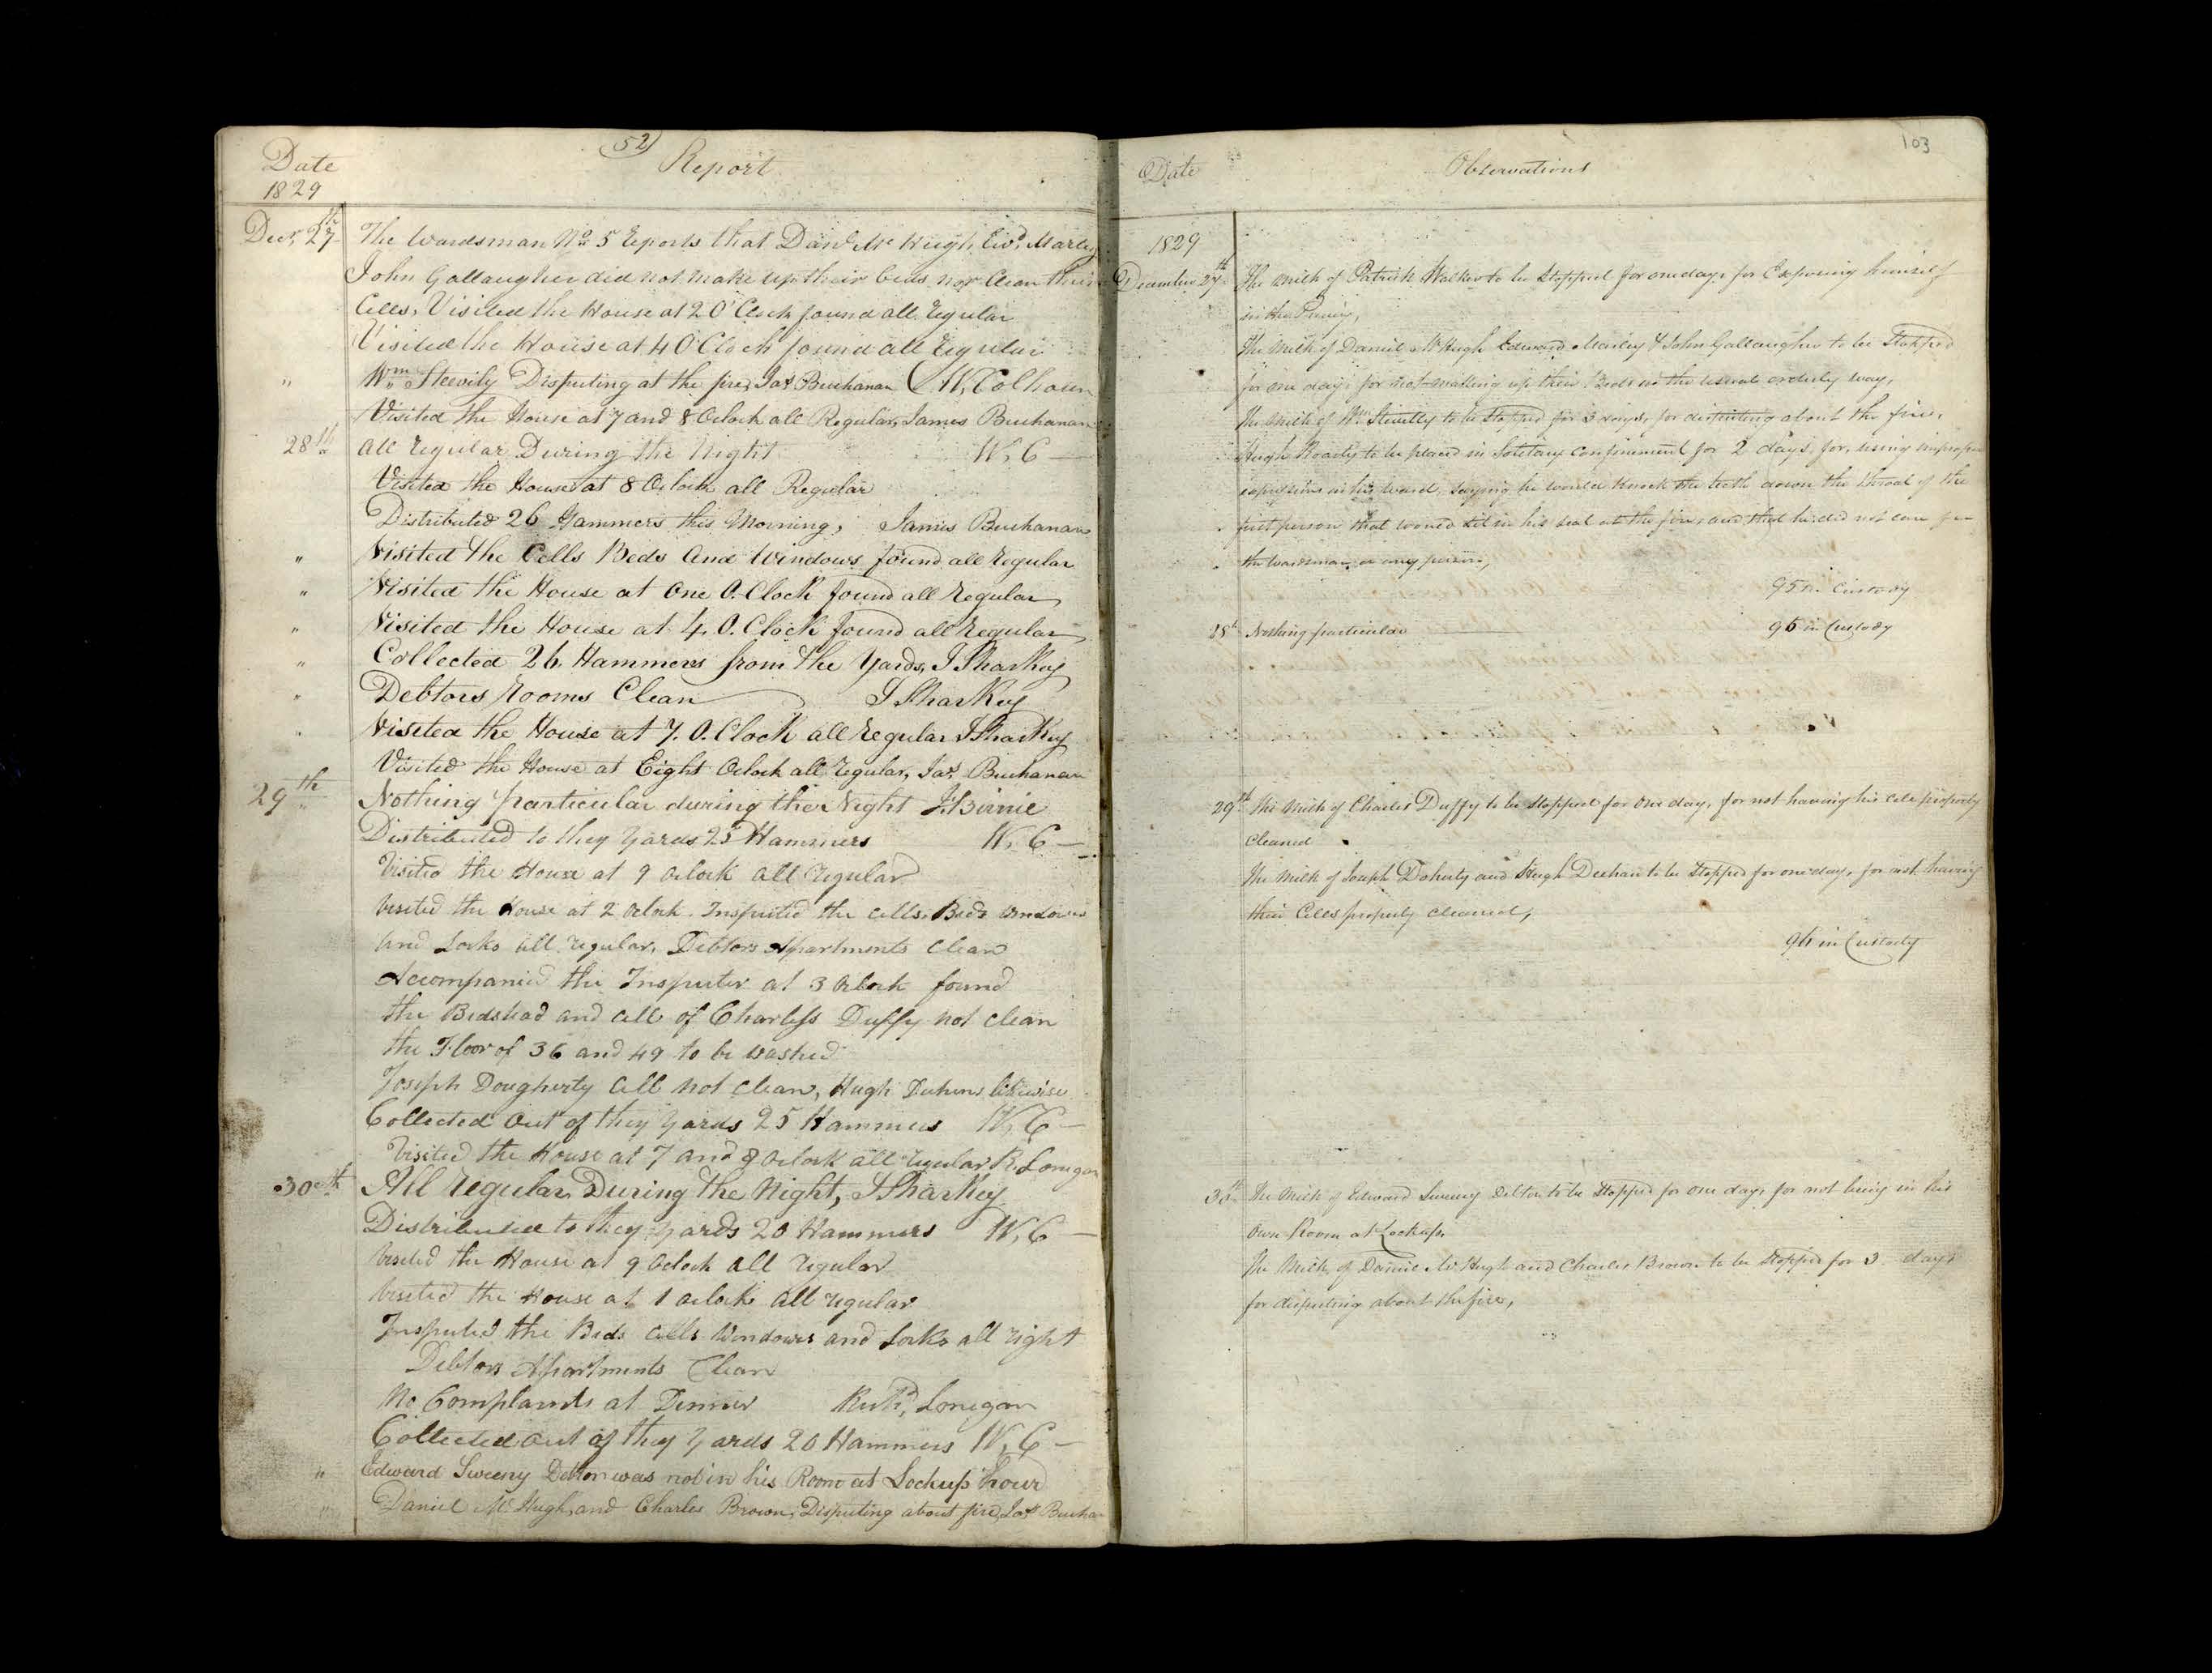 52
Date
Report
1829
Decr. 27th The Wardsman No 5 Reports that Danl. Mc Hugh, Ewd. Marley
John Gallaugher did not make up their beds nor Clean their
Cells, Visited the House at 2 O'Clock found all regular
Visited the House at 4 O'Clock found all regular
" Wm Steevily Disputing at the fire, Jas. Buchanan W. Colhoun
Visited the House at 7 and 8 Oclock all Regular, James Buchanan
28th All regular During the Night W, C
Visited the House at 8 Oclock all Regular
Distributed 26 Hammers this Morning, James Buchanan
" Visited the Cells Beds and Windows found all regular
" Visited the House at One O. Clock found all regular
" Visited the House at 4. O. Clock found all regular
" Collected 26 Hammers from the yards, J Sharkey
" Debtors Rooms Clean J Sharkey
" Visited the House at 7. O. Clock all regular J Sharkey
Visited the House at Eight Oclock all regular, Jas. Buchanan
29th Nothing particular during the Night J. Birnie
Distributed to they yards 25 Hammers W, C
Visited the House at 9 oclock all regular
Visited the House at 2 oclock. Inspected the cells Beds windows
and Locks all regular, Debtors Apartments clean
Accompanied the Inspector at 3 oclock found
the Bedstead and cell of Charless Duffy not clean
the Floor of 36 and 49 to be washed
Joseph Dougherty cell not clean, Hugh Deehens likewise
Collected Out of they yards 25 Hammers W, C
Visited the House at 7 and 8 oclock all regular R. Lonigan
30th All regular During the Night, J Sharkey
Distributed to they yards 20 Hammers W, C
Visited the House at 9 oclock all regular
Visited the House at 1 oclock all regular
Inspected the Beds cells windows and Locks all right
Debtors Apartments Clean
No Complaints at Dinner Richd, Lonigan
Collected out of they yards 20 Hammers W, C
" Edward Sweeny Debtor was not in his Room at Lockup hour
" Daniel Mc Hugh, and Charles Brown, Disputing about fire, Jas. Buchan
103
Date
Observations
1829
December 27th The milk of Patrick Walker to be stopped for one day, for Exposing himself
in the Privy,
The milk of Daniel McHugh Edward Marley & John Gallaugher to be stopped
for one day, for not making up their Beds in the usual orderly way,
The milk of Wm. Steuelly to be stopped for 3 days, for disputing about the fire.
Hugh Roarty to be placed in Solitary confinement for 2 days, for, using improper
expressions in his ward, saying he would knock the teeth down the throat of the
first person that would sit in his seat at the fire, and that he did not care for
the wardsman or any person,
95 in Custody
28th Nothing particular 96 in Custody
29th The milk of Charles Duffy to be stopped for one day, for not having his cell properly
cleaned
The milk of Joseph Doherty and Hugh Deehan to be stopped for one day, for not having
their Cells properly cleaned,
96 in Custody
30th The milk of Edward Sweeny debtor to be stopped for one day, for not being in his
own Room at Lockup.
The Milk of Daniel McHugh and Charles Brown to be stopped for 3 days
for disputing about the fire,